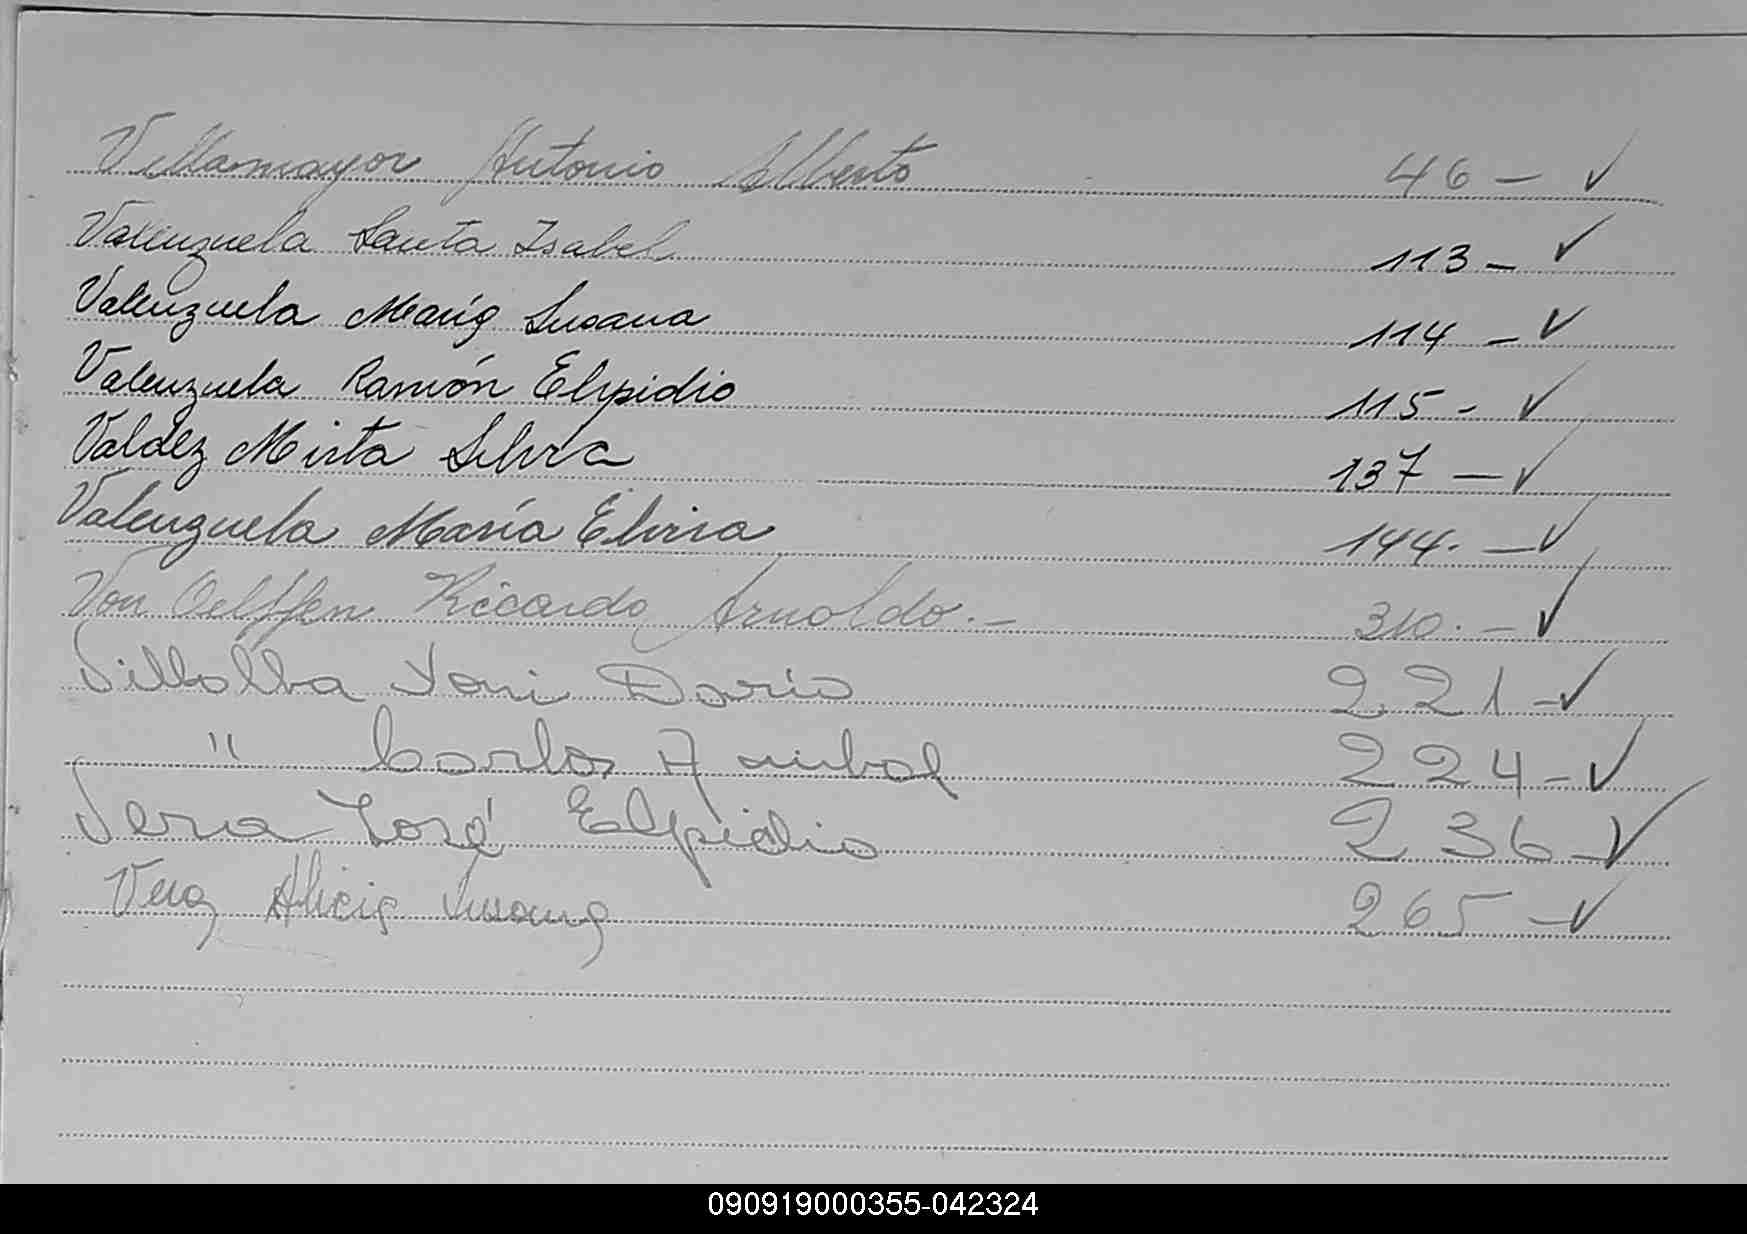 Villamayor Antonio Alberto 46 – ✓
Valenzuela Santa Isabel 113 – ✓
Valenzuela María Susana 114 – ✓
Valenzuela Ramón Elpidio 115 – ✓
Valdez Mirta Silvia 137 – ✓
Valenzuela María Elvira 144. – ✓
Von Oelffen Riccardo Arnoldo. – 310. – ✓
Villalba Yoni Dario 221 – ✓
" Carlos Anibal 224 – ✓
Vera José Elpidio 236 – ✓
Vera Alicia Susana 265 – ✓
090919000355-042324